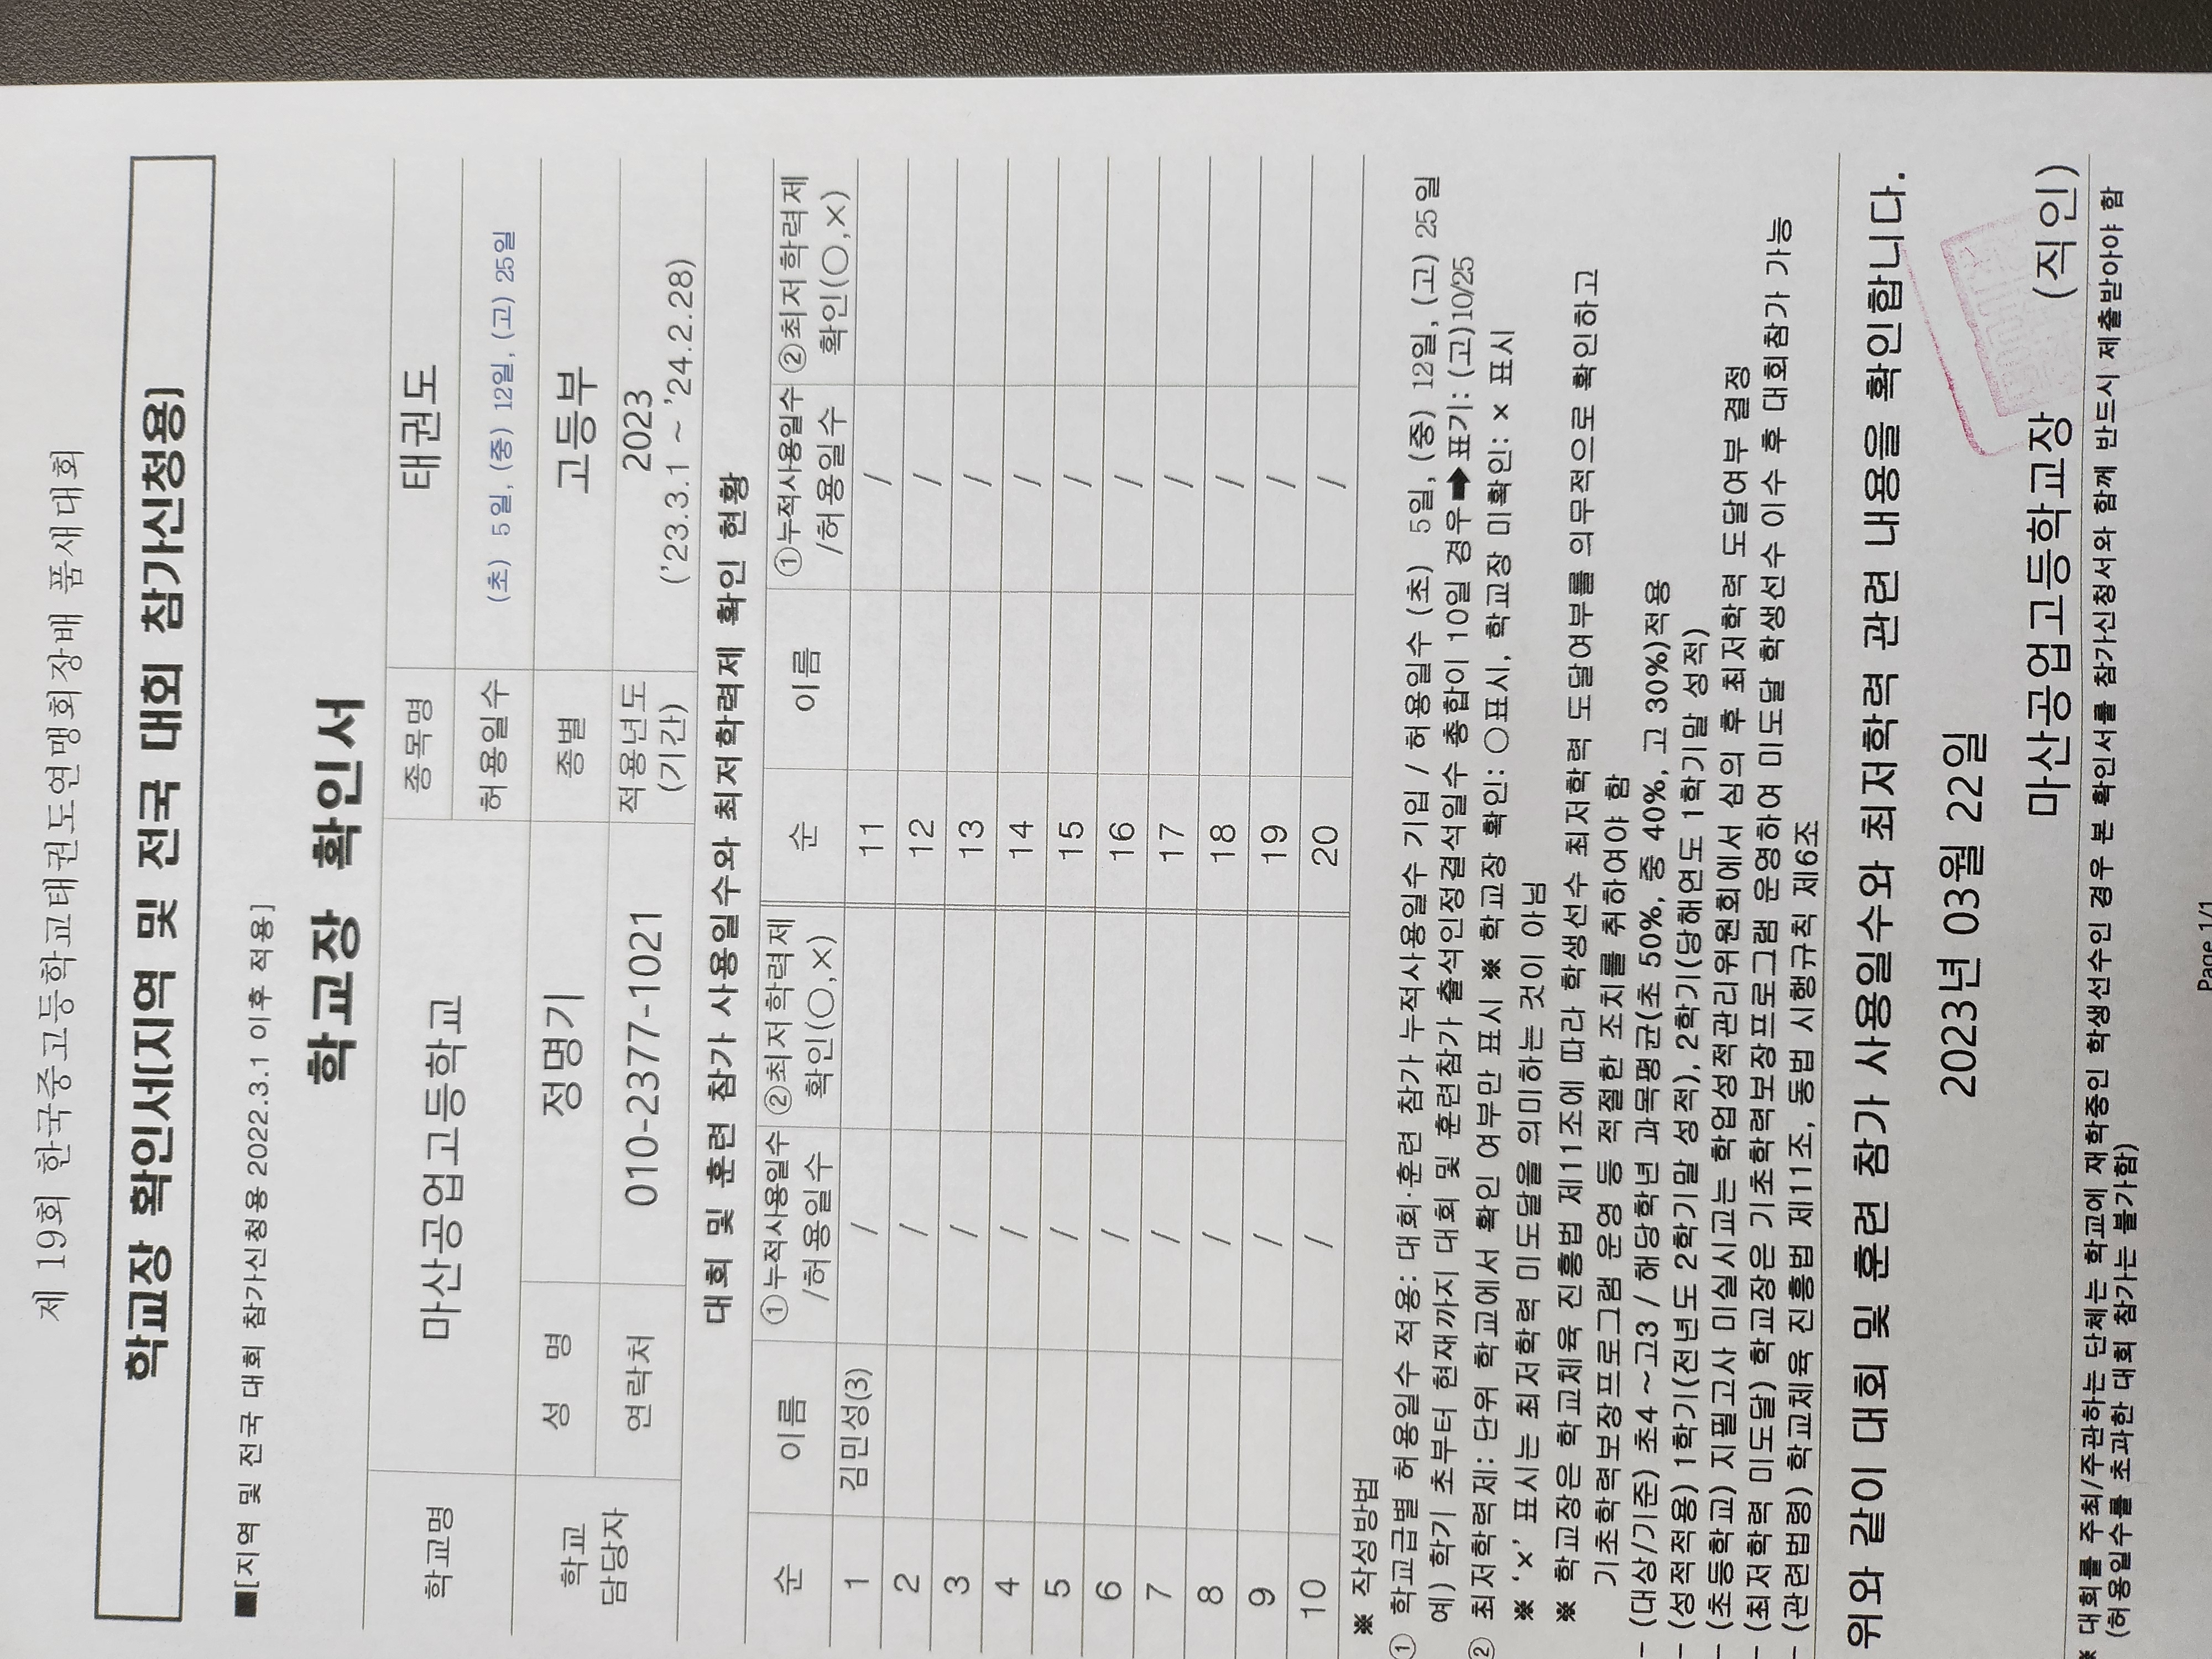 제 19회 한국중고등학교태권도연맹회장배 품새대회
학교장 확인서[지역 및 전국 대회 참가신청용]
■[지역 및 전국 대회 참가신청용 2022.3.1 이후 적용]
학교장 확인서
학교명 마산공업고등학교 종목명 태권도
허용일수 (초) 5일, (중) 12일, (고) 25일
학교 담당자 성 명 정명기 종별 고등부
연락처 010-2377-1021 적용년도 (기간) 2023
('23.3.1 ~ '24.2.28)
대회 및 훈련 참가 사용일수와 최저학력제 확인 현황
순 이름 ①누적사용일수 /허용일수 ②최저학력제 확인(○,×) 순 이름 ①누적사용일수 /허용일수 ②최저학력제 확인(○,×)
1 김민성(3) / 11 /
2 / 12 /
3 / 13 /
4 / 14 /
5 / 15 /
6 / 16 /
7 / 17 /
8 / 18 /
9 / 19 /
10 / 20 /
※ 작성방법
① 학교급별 허용일수 적용: 대회·훈련 참가 누적사용일수 기입 / 허용일수 (초) 5일, (중) 12일, (고) 25일
예) 학기 초부터 현재까지 대회 및 훈련참가 출석인정결석일수 총합이 10일 경우➡표기: (고)10/25
② 최저학력제: 단위 학교에서 확인 여부만 표시 ※ 학교장 확인: ○표시, 학교장 미확인: × 표시
※ '×' 표시는 최저학력 미도달을 의미하는 것이 아님
※ 학교장은 학교체육 진흥법 제11조에 따라 학생선수 최저학력 도달여부를 의무적으로 확인하고
기초학력보장프로그램 운영 등 적절한 조치를 취하여야 함
- (대상/기준) 초4 ~고3 / 해당학년 과목평균(초 50%, 중 40%, 고 30%)적용
- (성적적용) 1학기(전년도 2학기말 성적), 2학기(당해연도 1학기말 성적)
- (초등학교) 지필고사 미실시교는 학업성적관리위원회에서 심의 후 최저학력 도달여부 결정
- (최저학력 미도달) 학교장은 기초학력보장프로그램 운영하여 미도달 학생선수 이수 후 대회참가 가능
- (관련법령) 학교체육 진흥법 제11조, 동법 시행규칙 제6조
위와 같이 대회 및 훈련 참가 사용일수와 최저학력 관련 내용을 확인합니다.
2023년 03월 22일
마산공업고등학교장 (직인)
※ 대회를 주최/주관하는 단체는 학교에 재학중인 학생선수인 경우 본 확인서를 참가신청서와 함께 반드시 제출받아야 함
(허용일수를 초과한 대회 참가는 불가함)
Page 1/1